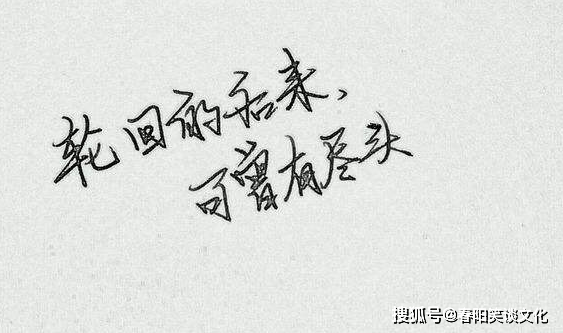 轮回的后来、
可曾有尽头
搜狐号@春阳笑谈文化